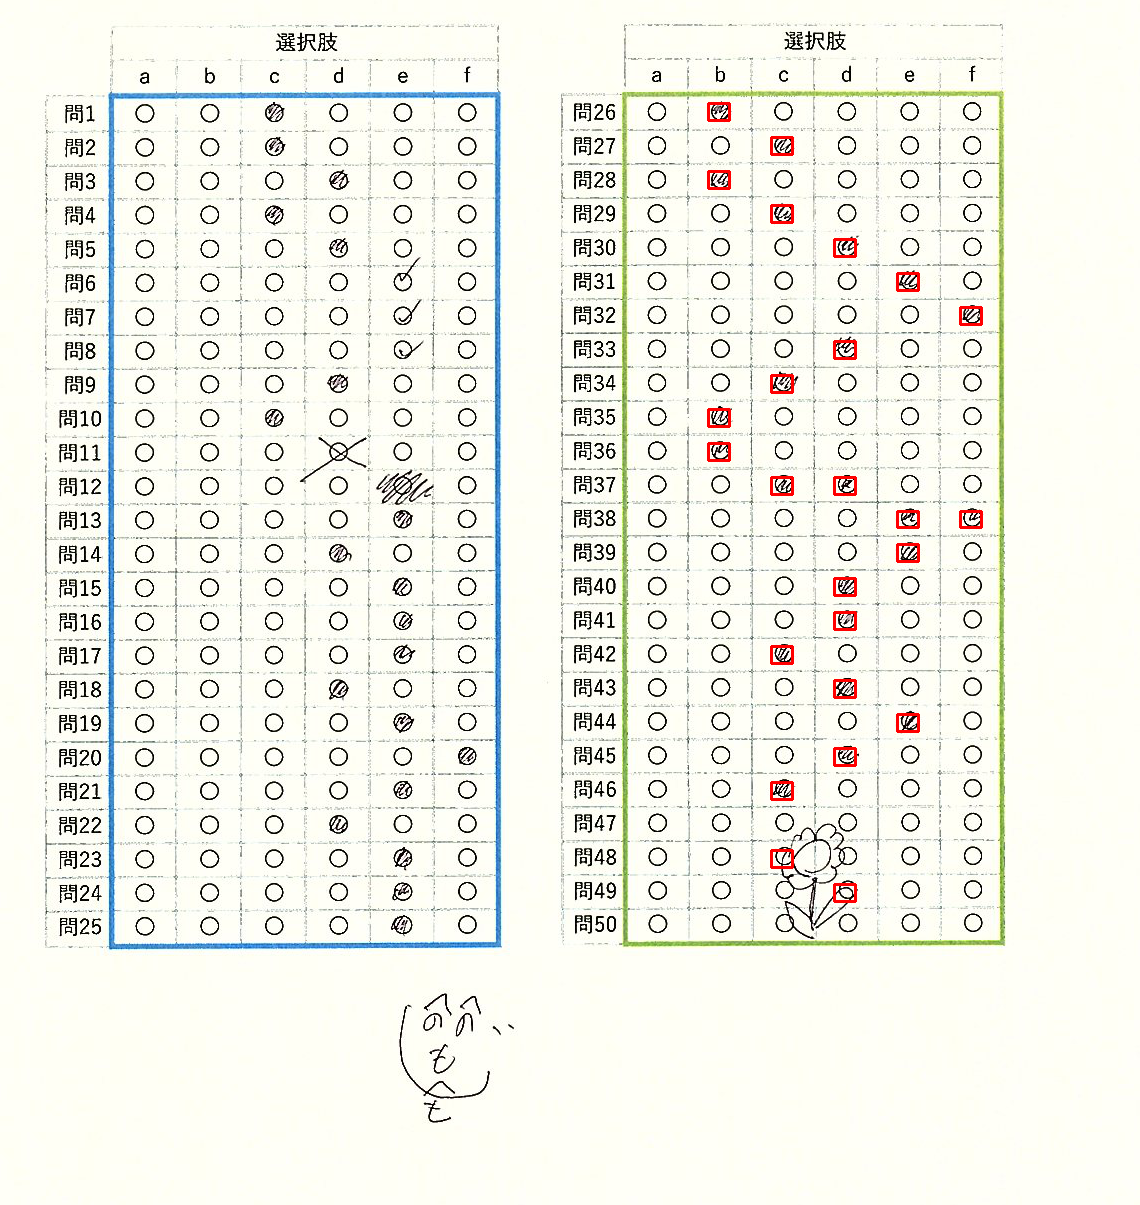 選択肢
a b c d e f
問1
問2
問3
問4
問5
問6
問7
問8
問9
問10
問11
問12
問13
問14
問15
問16
問17
問18
問19
問20
問21
問22
問23
問24
問25
選択肢
a b c d e f
問26
問27
問28
問29
問30
問31
問32
問33
問34
問35
問36
問37
問38
問39
問40
問41
問42
問43
問44
問45
問46
問47
問48
問49
問50
へへ
のの
も
へ
じ